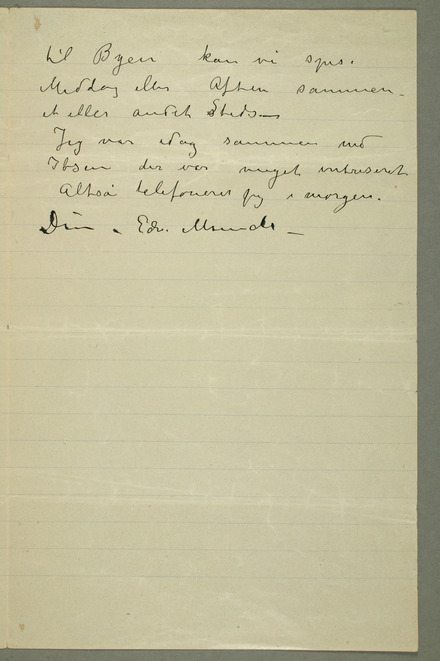 til Byen kan vi spise
Middag eller Aften sammen –
et eller andet Steds –
Jeg var idag sammen med
Ibsen der var meget interesseret
Altså telefonerer jeg i morgen.
Din Edv. Munch –